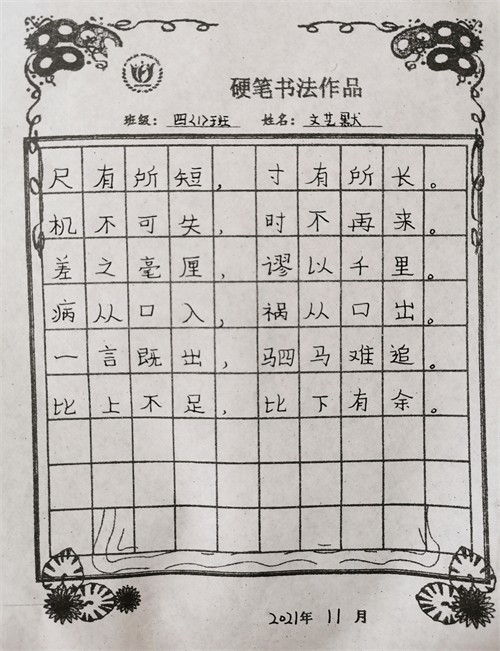 硬笔书法作品
班级：四〈1〉班 姓名：文艺默
尺有所短，寸有所长。
机不可失，时不再来。
差之毫厘，谬以千里。
病从口入，祸从口出。
一言既出，驷马难追。
比上不足，比下有余。
2021年 11 月